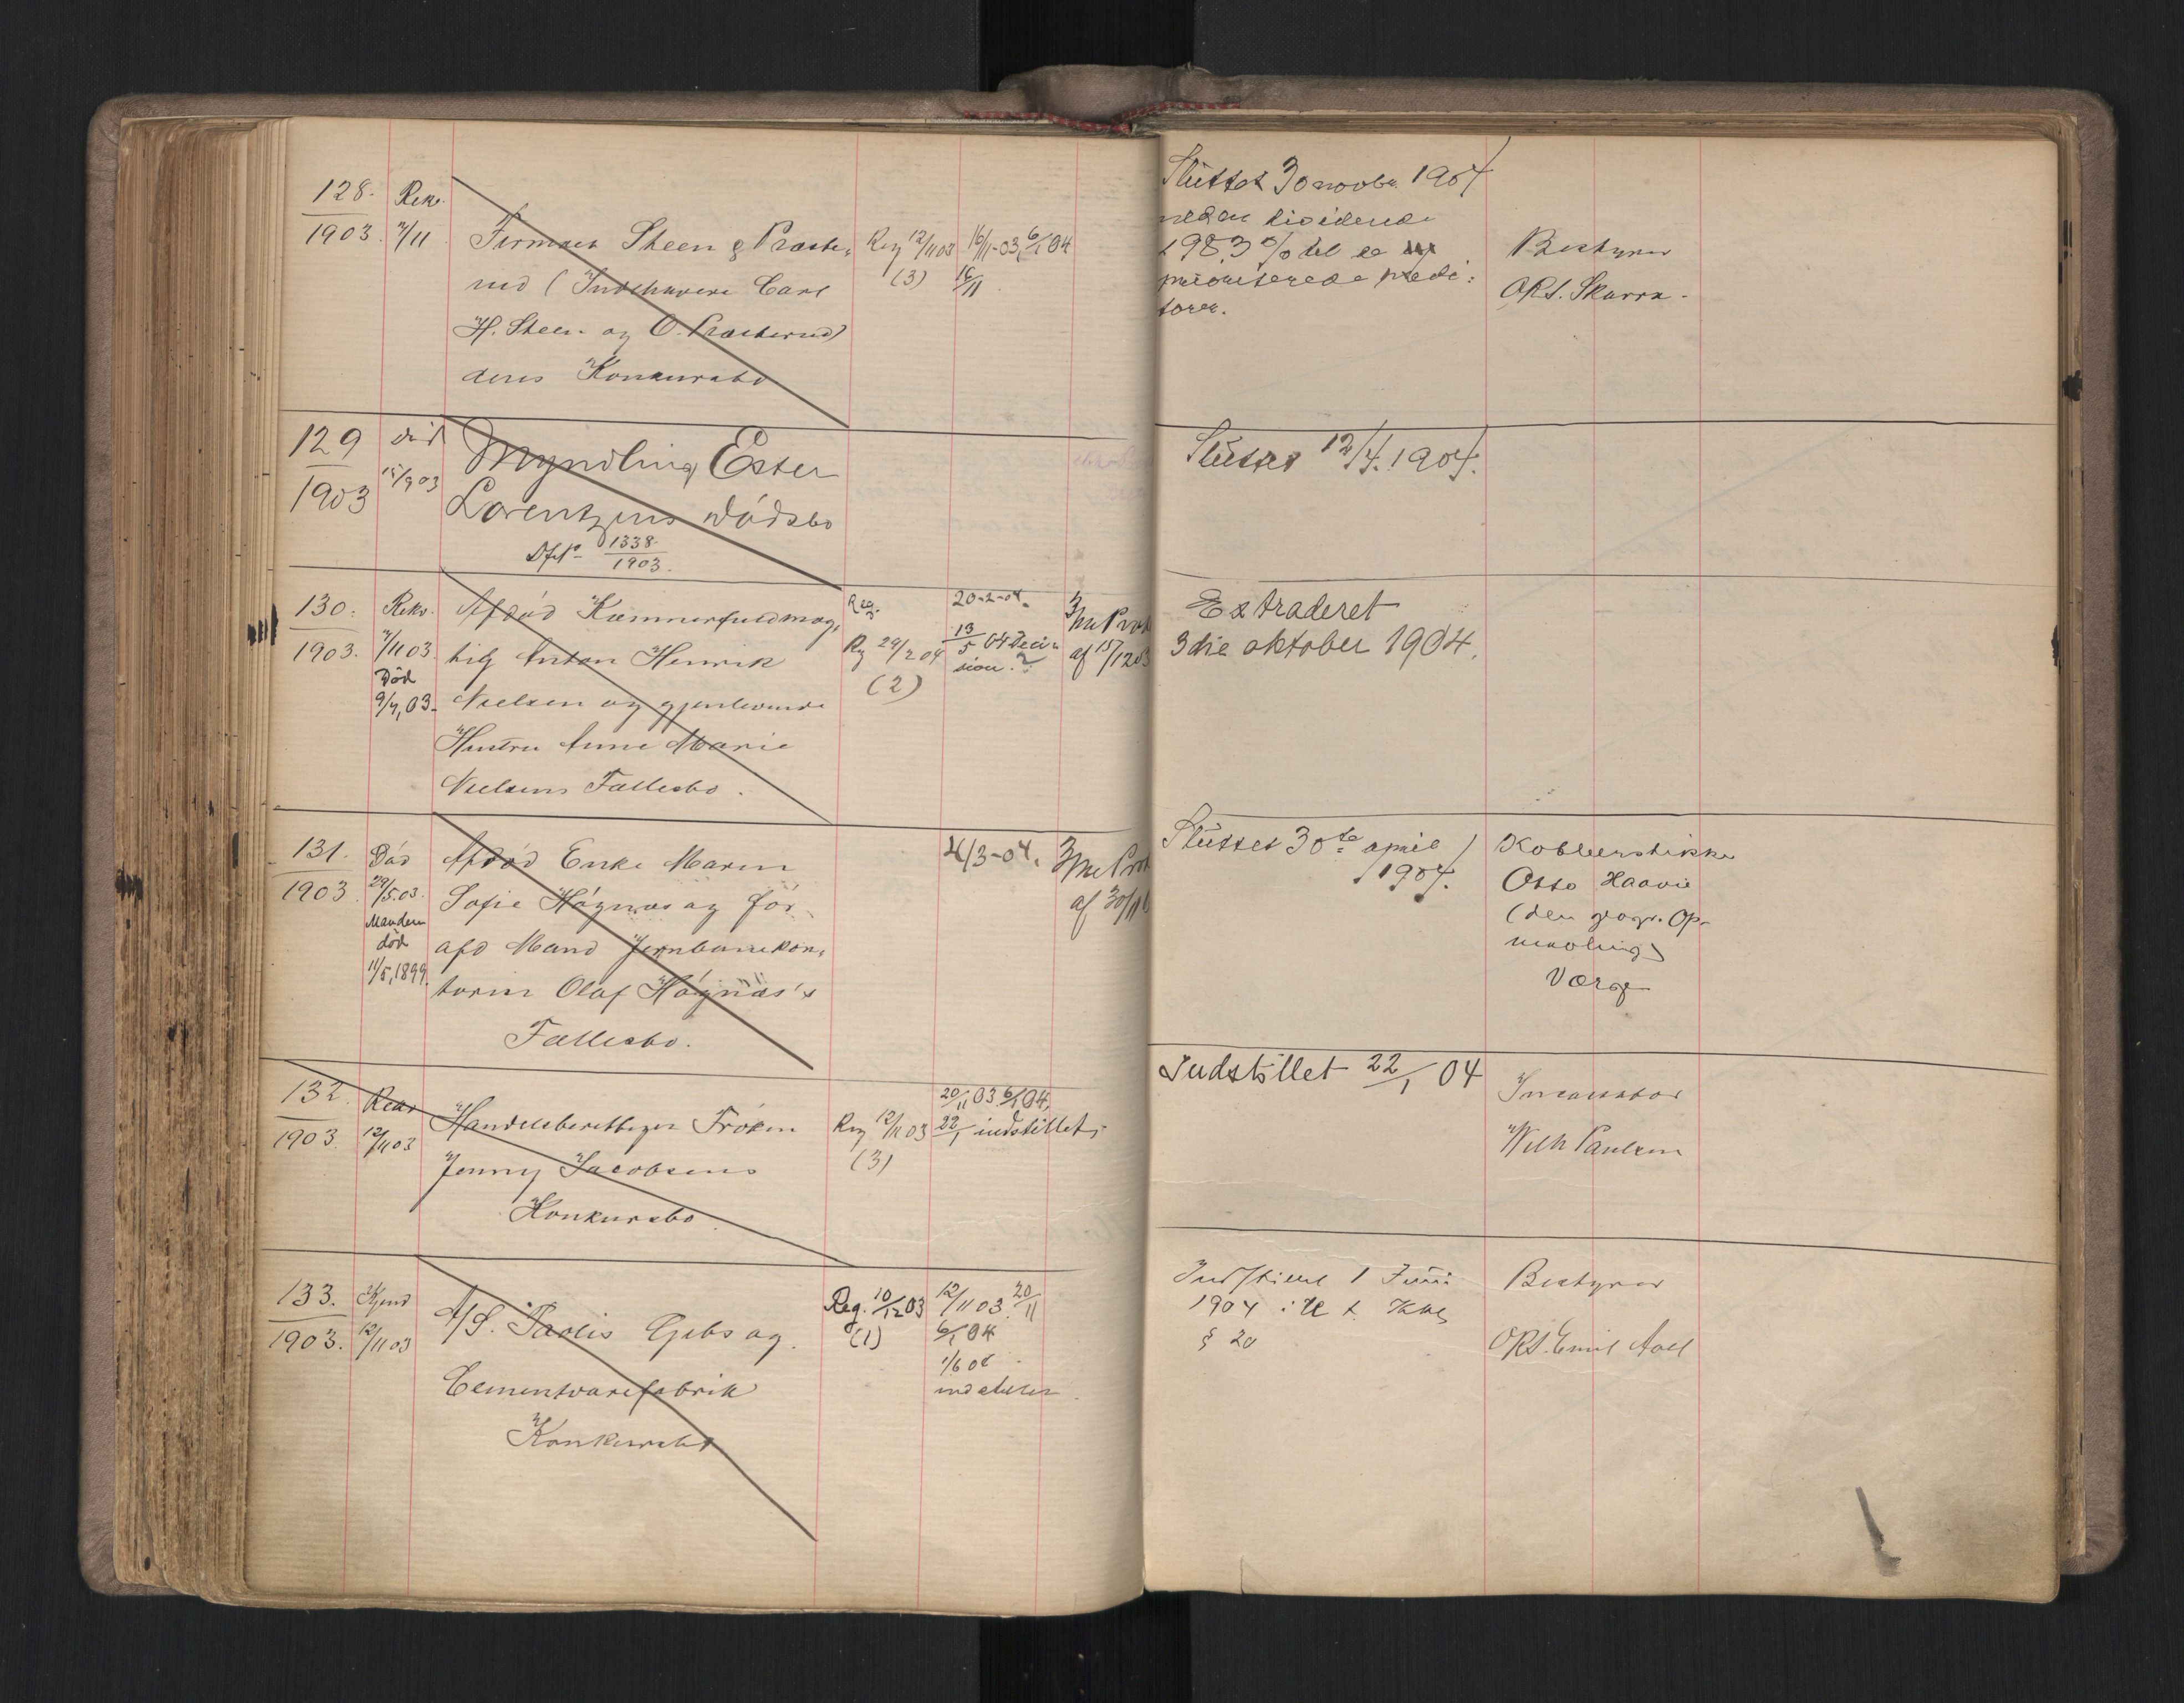 128.
1903.
Rekv.
7/11
Firmaet Steen & Præste-
rud (Indehavere Carl
H. Steen og O. Præsterud)
deres Konkursbo
Reg 12/11 03
(3)
16/11-03, 6/1 04
16/11
Sluttet 30 novbr. 1904
1983 % til de
prioriterede kredi:
torer.
Bestyrer
ORS. Skarra.
129
1903
død
15/9 03
Myndling Ester
Lorentzens dødsbo
1338
1903.
Sluttet 12/4. 1904.
130.
1903.
Rekv.
7/11 03
Død
9/4, 03.
Afdød Kæmnerfuldmæg,
tig Anton Henrik
Nielsen og gjenlevende
Hustru Anne Marie
Nielsens Fællesbo.
Reg.
Reg 29/2 04
(2)
20-2-04.
13/5 04 Deci-
sion.?
3die Prot
af 15/12 03
Extraderet
3die oktober 1904.
131.
1903.
Død
29/5.03.
Manden
død
11/5, 1899.
Afdød Enke Maren
Sofie Høgnæs og før
afd Mand Jernbanekon,
torist Olaf Høgnæs's
Fællesbo.
4/3-04.
3die Prot
af 30/11
Sluttet 30te april
1904.
Kobberstikker
Otto Haavie
(den geogr. Op-
maaling)
Værge
132.
1903.
Rekv
12/11 03
Handelsberettiget Frøken
Jenny Jacobsens
Konkursbo.
Reg 12/11 03
(3)
20/11 03. 6/1 04,
22/1 indstillet.
Indstillet 22/1 04
Incassator
Wilh Paulsen
133.
1903.
Kjend
12/11 03
A/S. Parolis Gibs og
Cementvarefabrik
Konkursbo
Reg. 10/12 03
(1)
12/11 03. 20/11
6/1 04
1/6 04
indstillet.
Indstillet 1 Juni
1904
§ 20
Bestyrer
ORS. Emil Aall